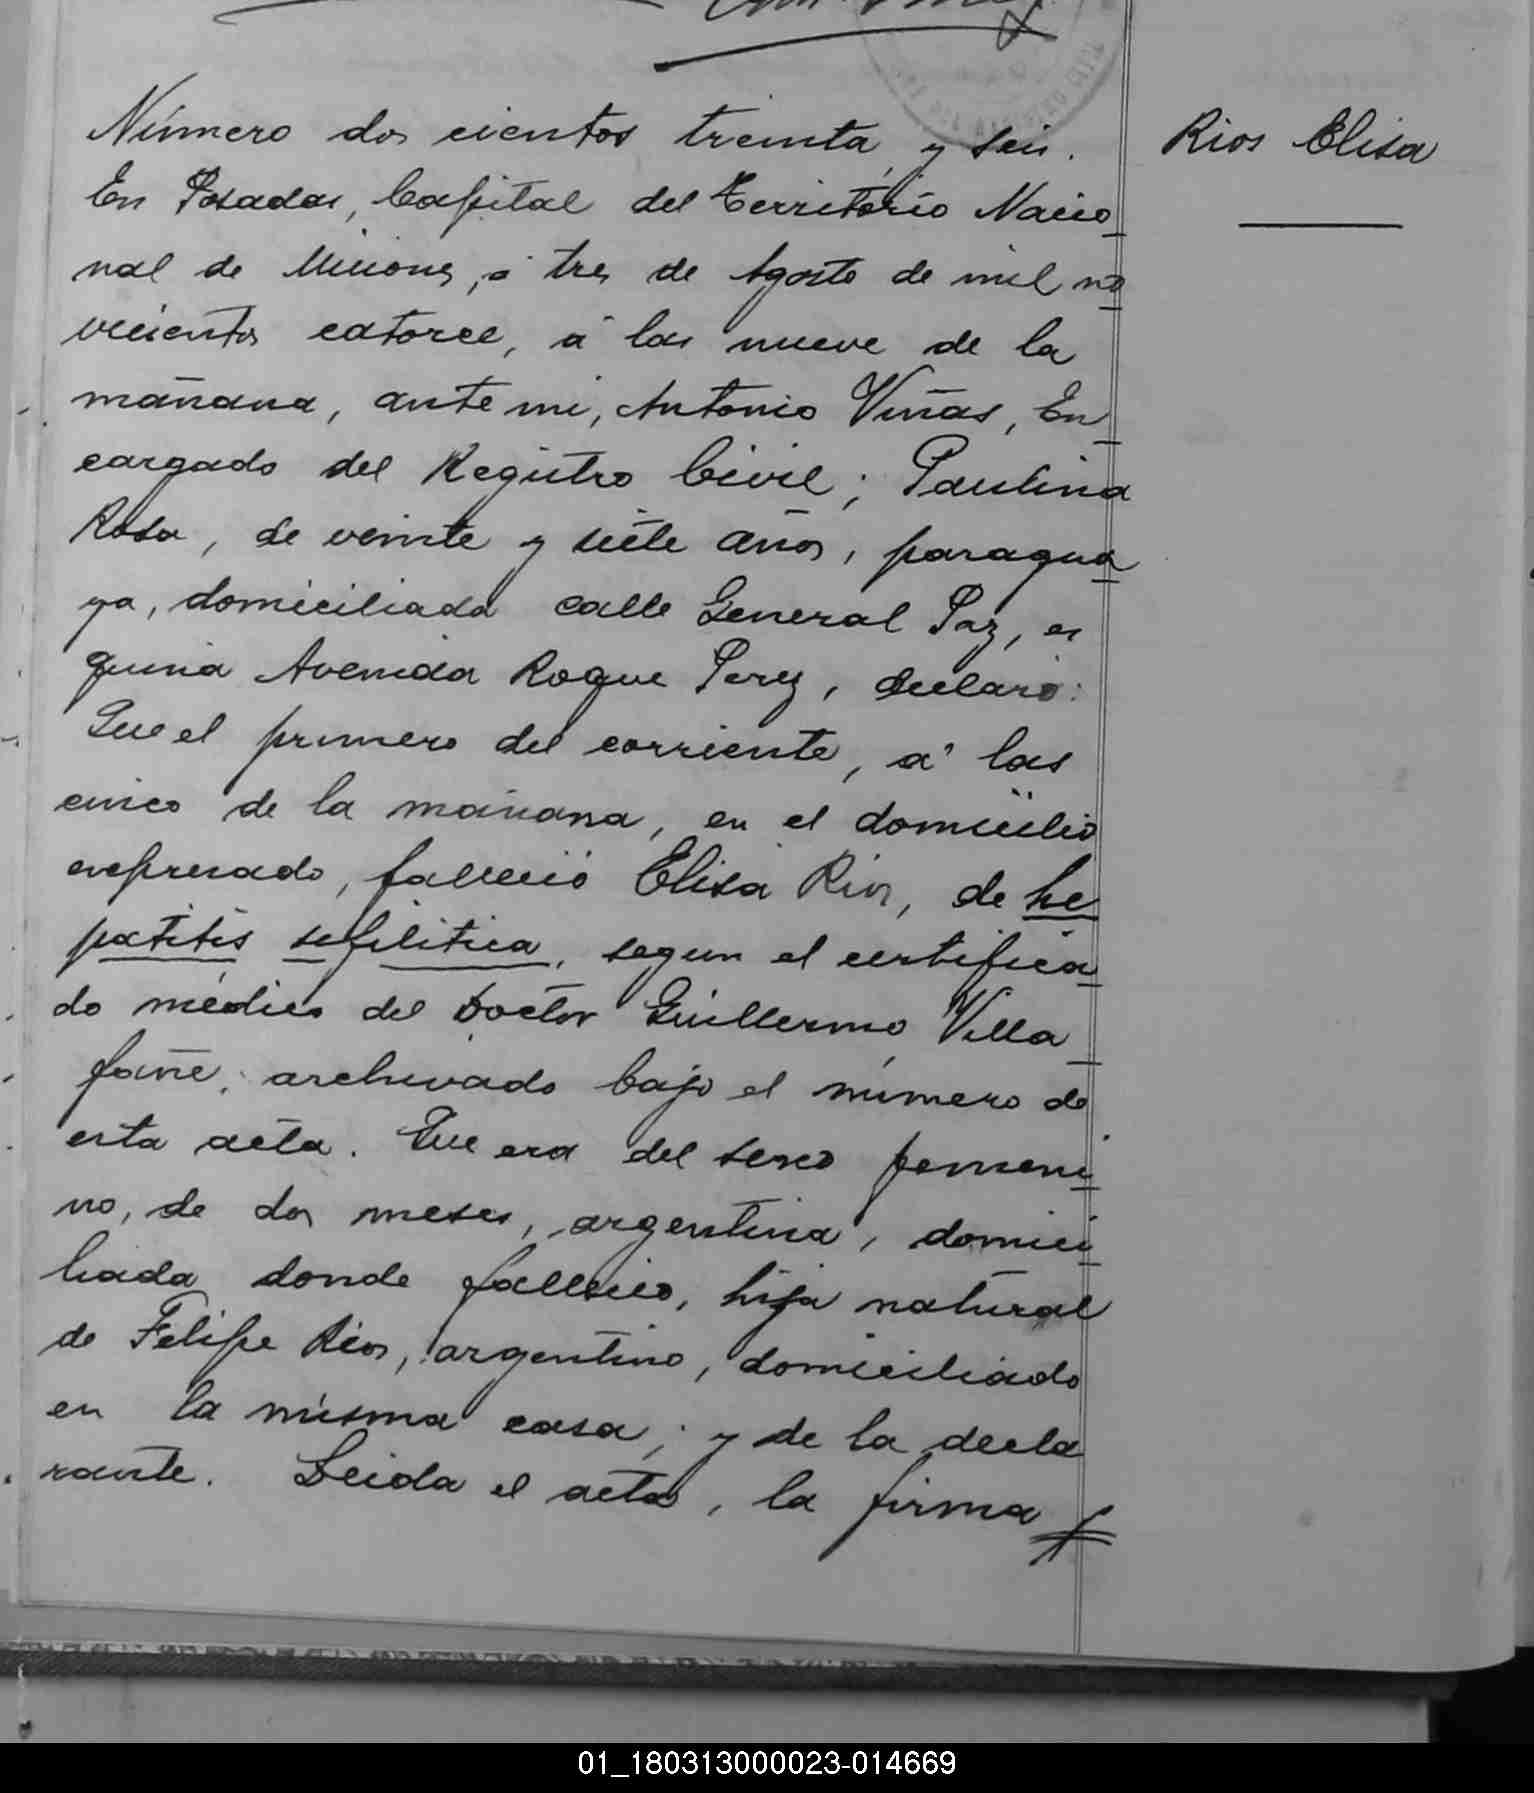 Número dos cientos treinta y seis.
Rios Elisa
En Posadas, Capital del Territorio Nacio
nal de Misiones, á tres de Agosto de mil no
vecientos catorce, á las nueve de la
mañana, ante mi, Antonio Viñas, En
cargado del Registro Civil; Paulina
Rosa, de veinte y siete años, paragua
ya, domiciliada calle General Paz, es
quina Avenida Roque Perez, declaró:
Que el primero del corriente, a' las
cinco de la mañana, en el domicilio
expresado, falleció Elisa Rios, de he
patitis sifilitica, segun el certifica
do médico del Doctor Guillermo Villa
fañe, archivado bajo el número de
esta acta. Que era del sexo femeni
no, de dos meses, argentina, domici
liada donde falleció, hija natural
de Felipe Rios, argentino, domiciliado
en la misma casa; y de la decla
rante. Leida el acta, la firma
01_180313000023-014669